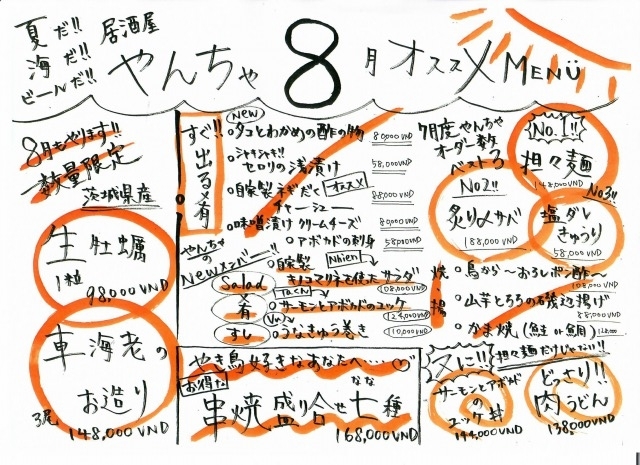 夏だ!!
海だ!!
ビールだ!!
居酒屋
やんちゃ 8月 オススメ MENÜ
8月もやります!!
数量限定
茨城県産
生牡蠣
1粒 98,000VND
車海老の
お造り
3尾 148,000VND
すぐ!!出る肴
New
タコとわかめの酢の物 80,000VND
シャキシャキ!!
セロリの浅漬け 58,000VND
自家製ネギだく オススメ
チャーシュー 88,000VND
味噌漬けクリームチーズ 80,000VND
アボカドの刺身 58,000VND
やんちゃの
Newメンバー!!
自家製 Nhien
Salad キハダマグロを使ったサラダ 108,000VND
肴 サーモンとアボカドのユッケ 124,000VND
すし うなきゅう巻き 110,000VND
やき鳥好きなあなたへ…
お得な
串焼盛り合せ七種
なな
168,000VND
7月度やんちゃ
オーダー数
ベスト3
No.1!!
担々麺
148,000VND
No2!!
炙り〆サバ
188,000VND
No3!!
塩ダレ
きゅうり
58,000VND
焼 揚
鳥から〜おろしポン酢〜
108,000VND
山芋とろろの磯辺揚げ
88,000VND
かま焼(鮭 or 鯛)
〆に!!
担々麺だけじゃない!!
サーモンとアボカドの
ユッケ丼
144,000VND
どっさり!!
肉うどん
138,000VND